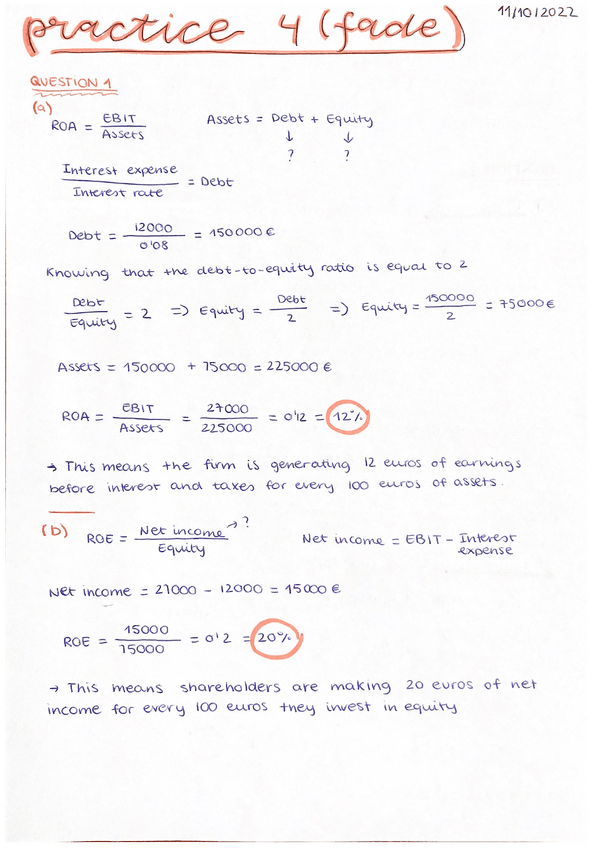 11/10/2022
practice 4 (fade)
QUESTION 1
(a)
ROA = EBIT / Assets    Assets = Debt + Equity
↓ ↓
? ?
Interest expense / Interest rate = Debt
Debt = 12000 / 0'08 = 150000 €
Knowing that the debt-to-equity ratio is equal to 2
Debt / Equity = 2 => Equity = Debt / 2 => Equity = 150000 / 2 = 75000 €
Assets = 150000 + 75000 = 225000 €
ROA = EBIT / Assets = 27000 / 225000 = 0'12 = 12%
→ This means the firm is generating 12 euros of earnings
before interest and taxes for every 100 euros of assets.
(b) ROE = Net income → ? / Equity    Net income = EBIT - Interest expense
Net income = 27000 - 12000 = 15000 €
ROE = 15000 / 75000 = 0'2 = 20%
→ This means shareholders are making 20 euros of net
income for every 100 euros they invest in equity